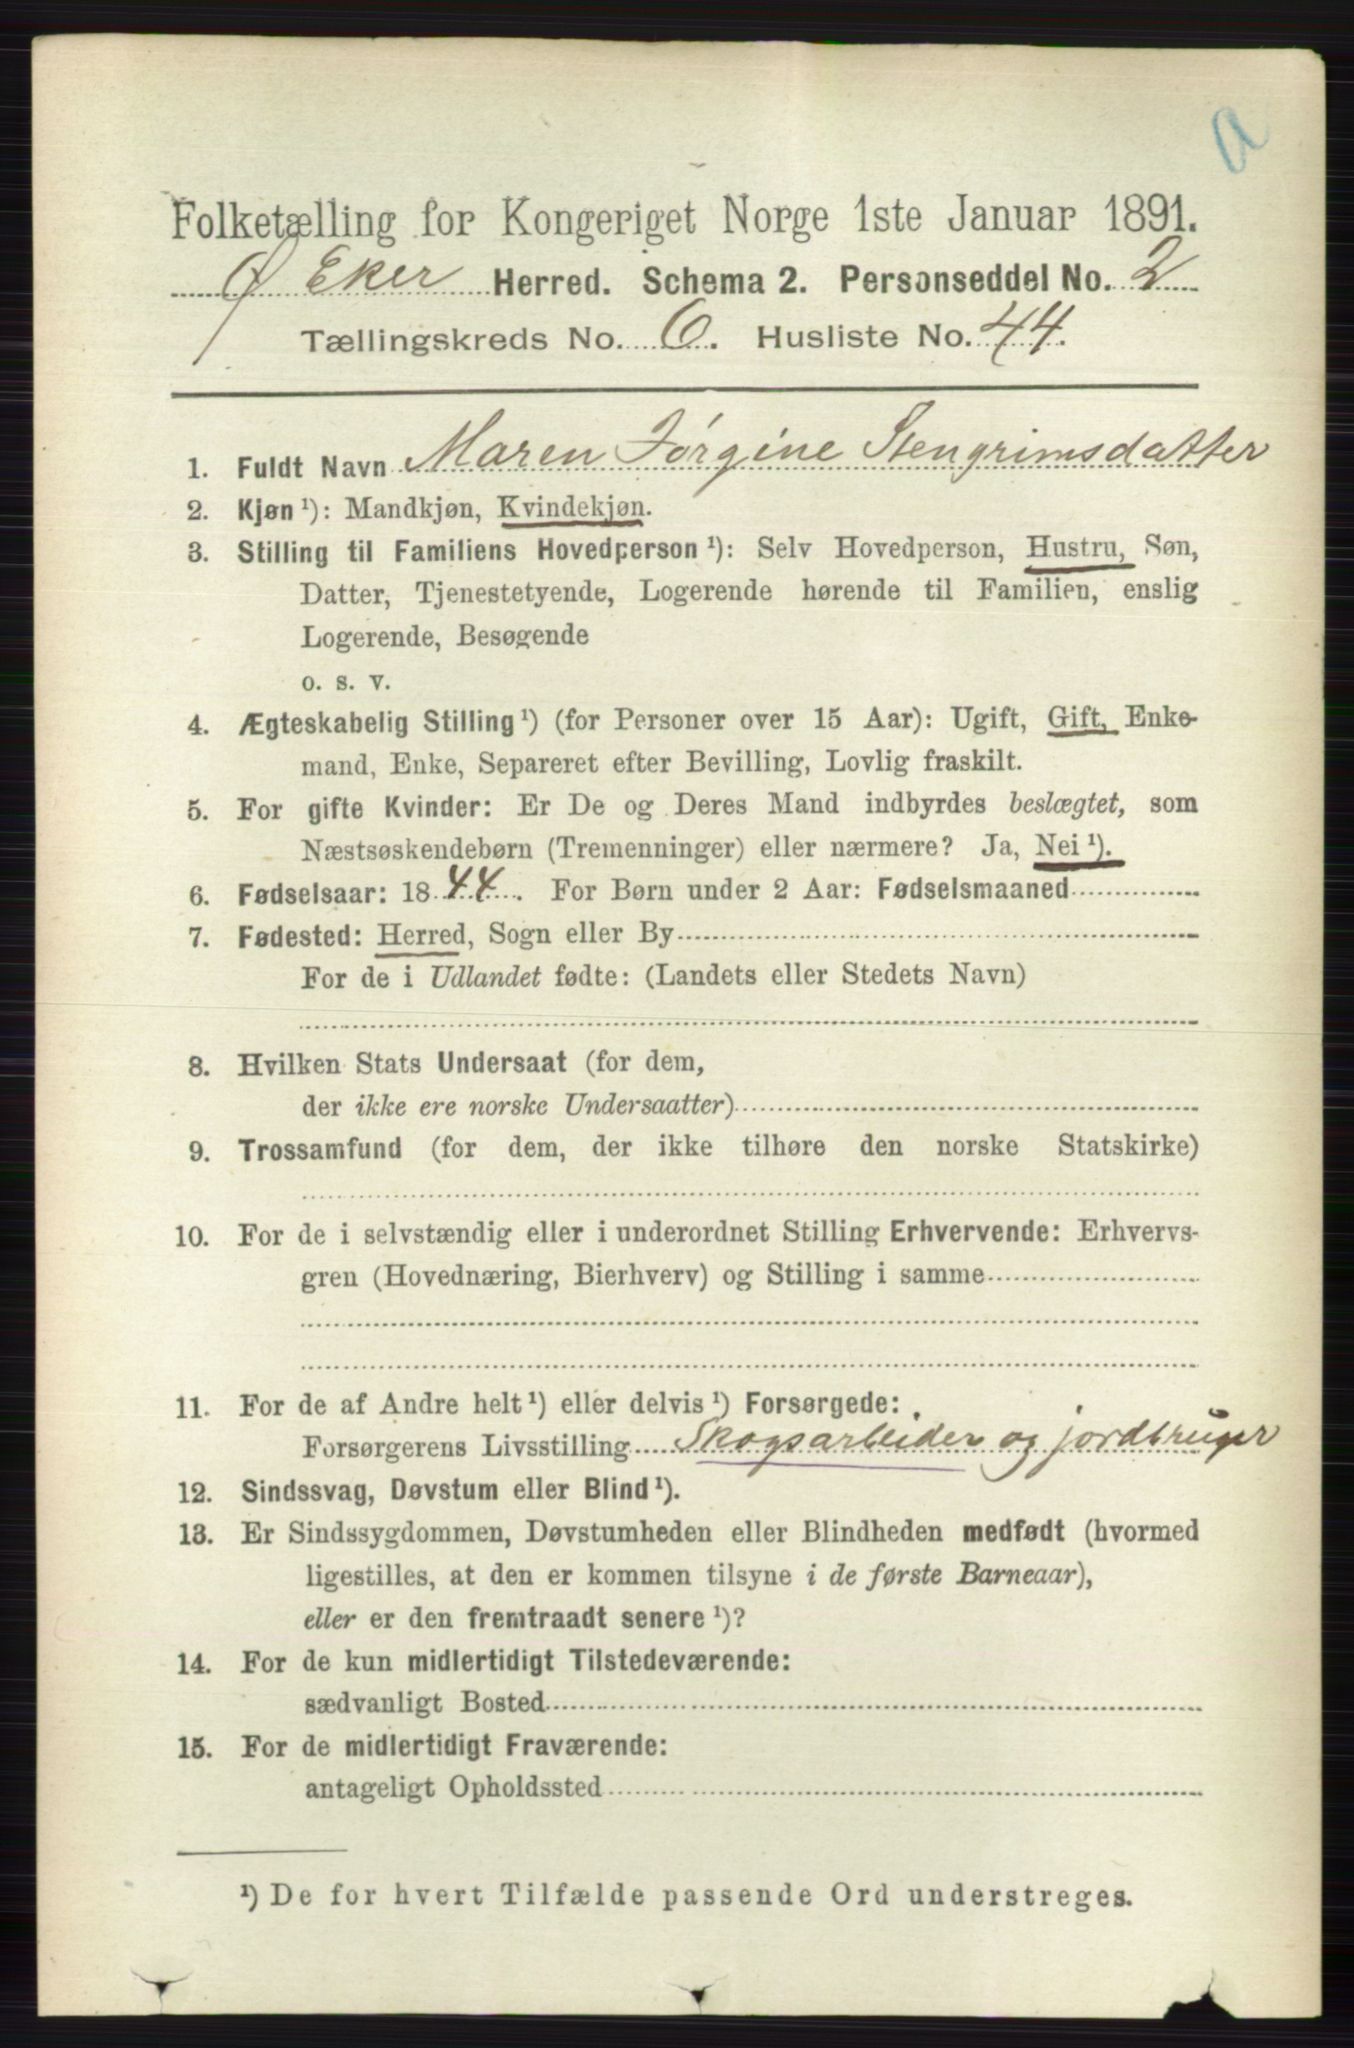 a
Folketælling for Kongeriget Norge 1ste Januar 1891.
Ø Eker Herred. Schema 2. Personseddel No. 2
Tællingskreds No. 6. Husliste No. 44.
1. Fuldt Navn Maren Jørgine Stengrimsdatter
2. Kjøn ¹): Mandkjøn, Kvindekjøn.
3. Stilling til Familiens Hovedperson ¹): Selv Hovedperson, Hustru, Søn,
Datter, Tjenestetyende, Logerende hørende til Familien, enslig
Logerende, Besøgende
o. s. v.
4. Ægteskabelig Stilling ¹) (for Personer over 15 Aar): Ugift, Gift, Enke-
mand, Enke, Separeret efter Bevilling, Lovlig fraskilt.
5. For gifte Kvinder: Er De og Deres Mand indbyrdes beslægtet, som
Næstsøskendebørn (Tremenninger) eller nærmere? Ja, Nei ¹).
6. Fødselsaar: 1844. For Børn under 2 Aar: Fødselsmaaned
7. Fødested: Herred, Sogn eller By
For de i Udlandet fødte: (Landets eller Stedets Navn)
8. Hvilken Stats Undersaat (for dem,
der ikke ere norske Undersaatter)
9. Trossamfund (for dem, der ikke tilhøre den norske Statskirke)
10. For de i selvstændig eller i underordnet Stilling Erhvervende: Erhvervs-
gren (Hovednæring, Bierhverv) og Stilling i samme
11. For de af Andre helt ¹) eller delvis ¹) Forsørgede:
Forsørgerens Livsstilling Skogsarbeider og jordbruger
12. Sindssvag, Døvstum eller Blind ¹).
13. Er Sindssygdommen, Døvstumheden eller Blindheden medfødt (hvormed
ligestilles, at den er kommen tilsyne i de første Barneaar),
eller er den fremtraadt senere ¹)?
14. For de kun midlertidigt Tilstedeværende:
sædvanligt Bosted
15. For de midlertidigt Fraværende:
antageligt Opholdssted
¹) De for hvert Tilfælde passende Ord understreges.